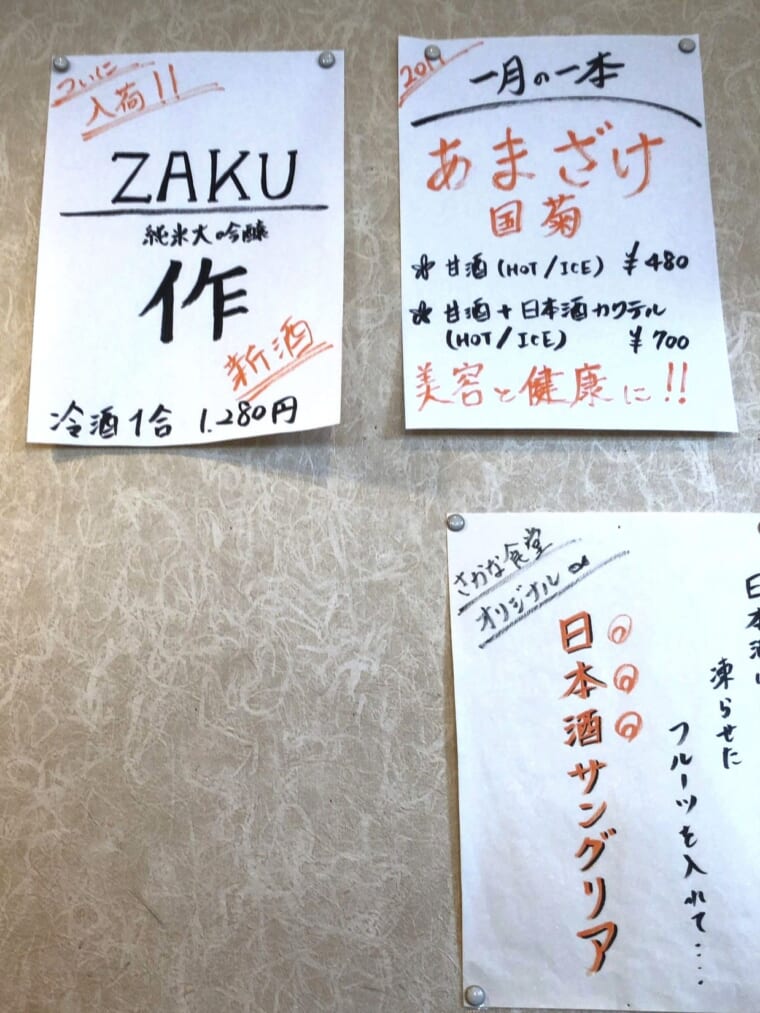 ついに
入荷!!
ZAKU
純米大吟醸
作
新酒
冷酒1合 1,280円
一月の一本
あまざけ
国菊
甘酒(HOT/ICE) ¥480
甘酒+日本酒カクテル
(HOT/ICE) ¥700
美容と健康に!!
さかな食堂
オリジナル
日本酒サングリア
凍らせた
フルーツを入れて....